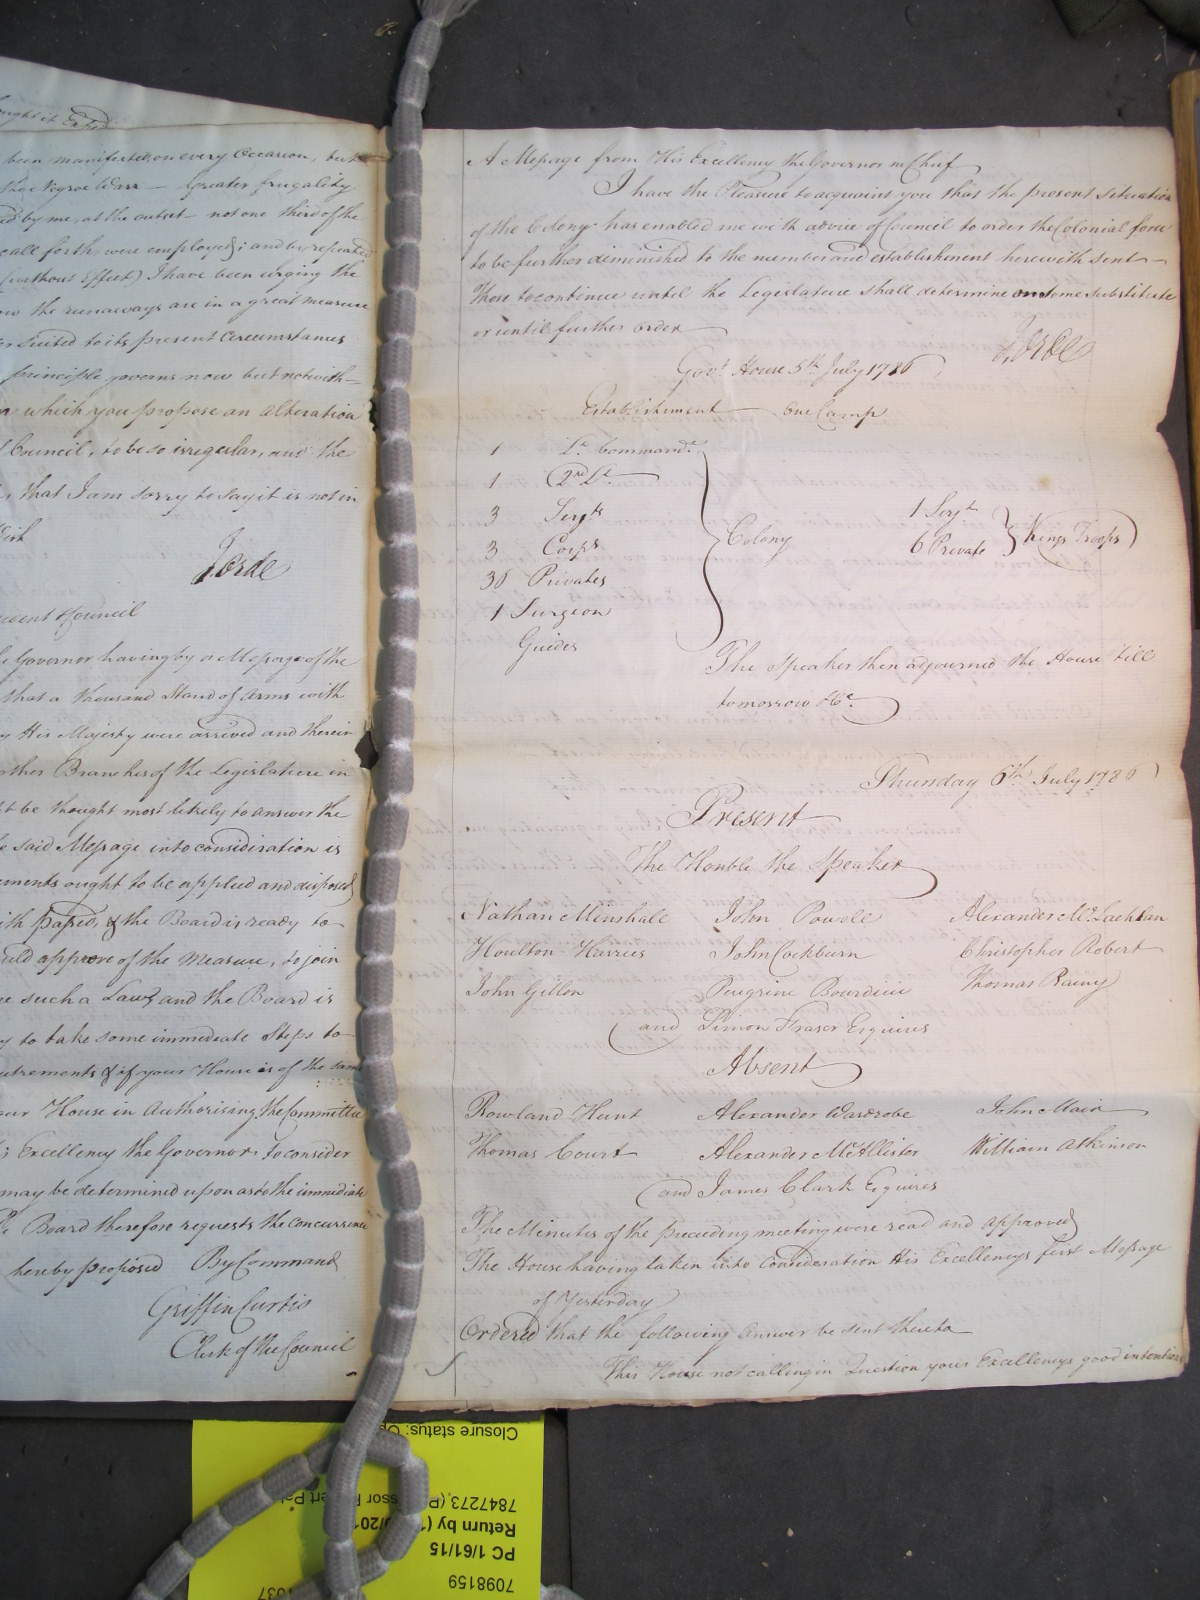 ought it
been manifested on every Occasion, but
the Negroe Warr — Greater frugality
ed by me, at the outset — not one third of the
call forth were employed; and by repeated
(without Effect) I have been urging the
ow the runaways are in a great measure
suited to its present Circumstances
principle governs now but notwith-
which you propose an alteration
Council, to be so irregular, and the
that I am sorry to say it is not in
J. Orde
ident of Council
Governor having by a Message of the
that a thousand Stand of Arms with
by His Majesty were arrived and therein
other Branches of the Legislature in
t be thought most likely to answer the
said Message into consideration is
ements ought to be applied and disposed
the Board is ready to
uld approve of the measure, to join
such a Law, and the Board is
y to take some immediate Steps to
utrements & if your House is of the same
our House in Authorising the Committee
is Excellency the Governor, to consider
may be determined upon as to the immediate
Board therefore requests the concurrence
hereby proposed By Command
Griffin Curtis
Clerk of the Council
A Message from His Excellency the Governor in Chief
I have the Pleasure to acquaint you that the present situation
of the Colony has enabled me with advice of Council to order the Colonial force
to be further diminished to the number and establishment herewith sent —
those to continue until the Legislature shall determine on some substitute
or until further order
J. Orde
Govt. House 5th July 1786
Establishment — One Camp
1 Lt. Commandt.
1 2nd Lt.
3 Serjts
3 Corps
Privates
1 Surgeon
Guides
Colony
1 Serjt
6 Private
Kings Troops
The Speaker then adjourned the House till
tomorrow &c.
Thursday 6th July 1786
Present
The Honble the Speaker
Nathan Minshall John Powell Alexander McLachlan
Houlton Harries John Cockburn Christopher Robert
John Gillon Peregrine Bourdieu Thomas Rainy
and Simon Fraser Esquires
Absent
Rowland Hunt Alexander Wardrobe John Mair
Thomas Court Alexander McAllister William Atkinson
and James Clark Esquires
The Minutes of the preceding meeting were read and approved
The House having taken into Consideration His Excellencys first Message
of Yesterday
Ordered that the following Answer be sent thereto
This House not calling in Question your Excellencys good intentions
Closure status:
7847273
Return by
PC 1/61/15
7098159